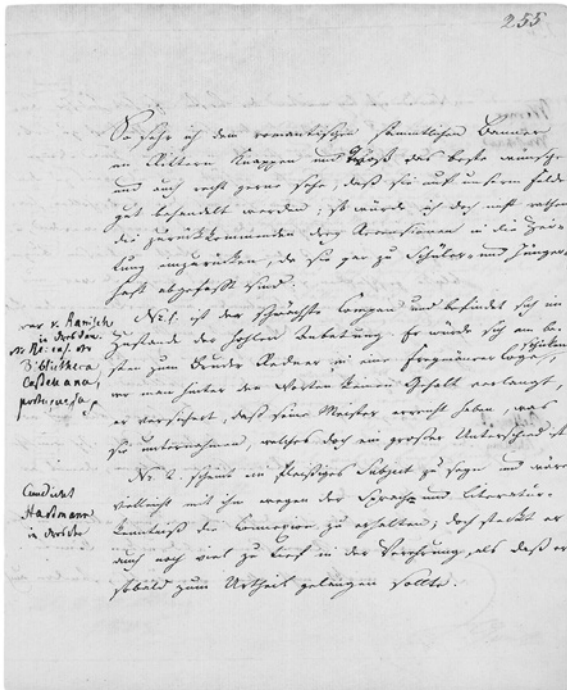 255
So sehr ich dem romantischen sämmtlichen Banner
an Rittern Knappen und Troß das beste wünsche
und auch recht gerne sehe, daß sie auf unserm Felde
gut behandelt werden; so würde ich doch nicht rathen
die zurückkommenden drey Recensionen in die Zei-
tung einzurücken, da sie gar zu Schüler- und Jünger-
haft abgefaßt sind.
No. 1. ist der schwächste Compan und befindet sich im
Zustande der hohlen Anbetung. Er würde sich am be-
sten zum Bruder Redner in eine Freymäurerloge schicken,
wo man hinter den Worten keinen Gehalt verlangt,
er versichert, daß seine Meister erreicht haben, was
sie unternehmen, welches doch ein großer Unterschied ist
No. 2. scheint ein fleißiges Subject zu seyn und wäre
vielleicht mit ihm wegen der Sprach- und Literatur-
kenntniß die Connexion zu erhalten; doch steckt er
auch noch viel zu tief in der Verehrung, als daß er
sobald zum Urtheil gelangen sollte.
in Dresden.
Bibliotheca
Castellana,
portuguesa
Candidat
Hastmann
in Dresden